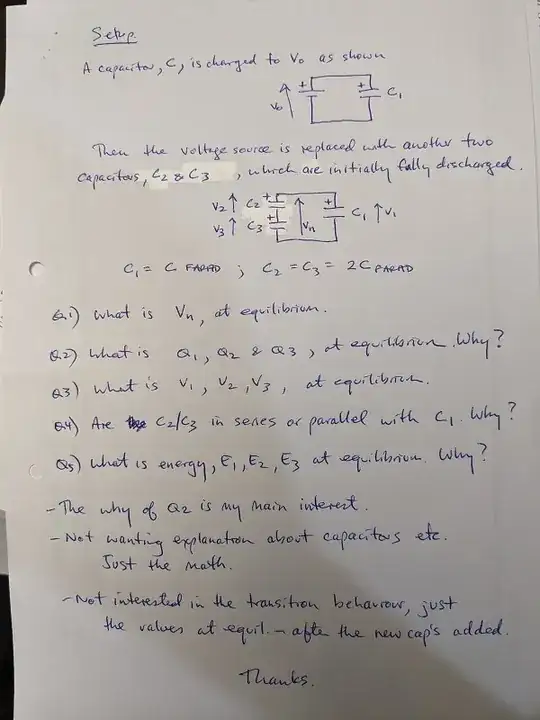 Setup.
A capacitor, C, is charged to Vo as shown
Vo + + C1
Then the voltage source is replaced with another two
capacitors, C2 & C3 , which are initially fully discharged.
V2 C2 + + C1 V1
V3 C3 + Vn
C1 = C FARAD ; C2 = C3 = 2C FARAD
Q1) What is Vn, at equilibrium.
Q2) What is Q1, Q2 & Q3, at equilibrium. Why?
Q3) What is V1, V2, V3, at equilibrium.
Q4) Are C2/C3 in series or parallel with C1. Why?
Q5) What is energy, E1, E2, E3 at equilibrium. Why?
- The why of Q2 is my main interest.
- Not wanting explanation about capacitors etc.
Just the math.
- Not interested in the transition behavour, just
the values at equil. - after the new cap's added.
Thanks.